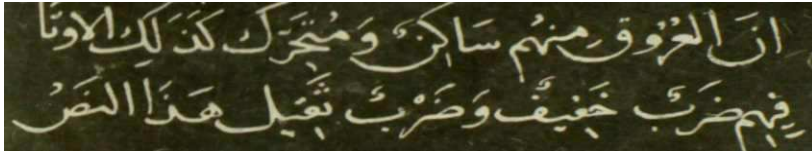 انَ العُرُوق مِنهُم سَاكِنٌ وَمُتَحَرّك كَذَلِكَ الاوتَا
فِيهِم ضَربٌ خَفِيفٌ وَضَرْبٌ ثَقِيل هَذَا النَصُ